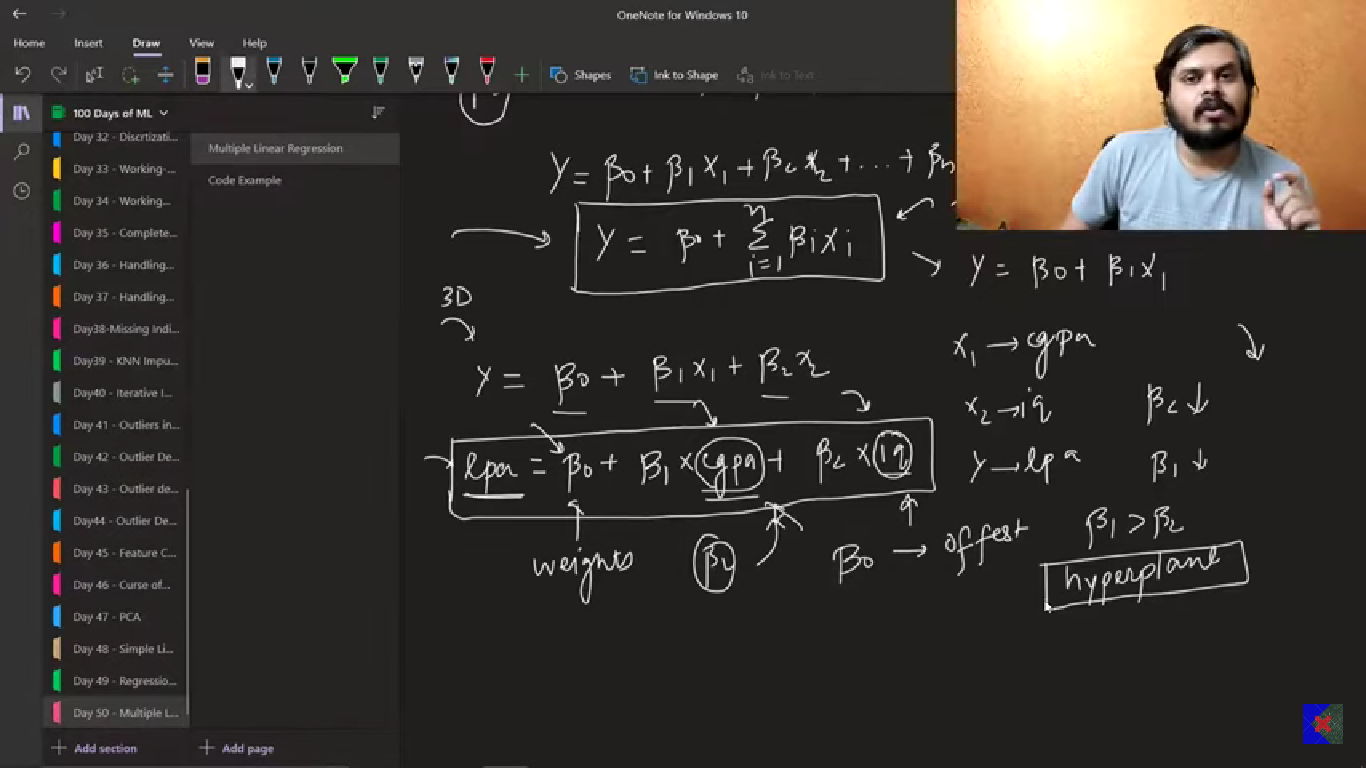 OneNote for Windows 10
Home Insert Draw View Help
Shapes Ink to Shape Ink to Text
100 Days of ML
Day 32 - Discrtizati...
Day 33 - Working-...
Day 34 - Working...
Day 35 - Complete...
Day 36 - Handling...
Day 37 - Handling...
Day38-Missing Indi...
Day39 - KNN Impu...
Day40 - Iterative I...
Day 41 - Outliers in...
Day 42 - Outlier De...
Day 43 - Outlier de...
Day44 - Outlier De...
Day 45 - Feature C...
Day 46 - Curse of...
Day 47 - PCA
Day 48 - Simple Li...
Day 49 - Regressio...
Day 50 - Multiple L...
Add section
Multiple Linear Regression
Code Example
Add page
Y = β0 + β1 X1 + β2 X2 + ... + βn
Y = β0 + Σ βi Xi
n
i=1
Y = β0 + β1 X1
3D
Y = β0 + β1 X1 + β2 X2
lpa = β0 + β1 × cgpa + β2 × iq
weights
β0 → offest
x1 → cgpa
x2 → iq
Y → lpa
β2 ↓
β1 ↓
β1 > β2
hyperplane